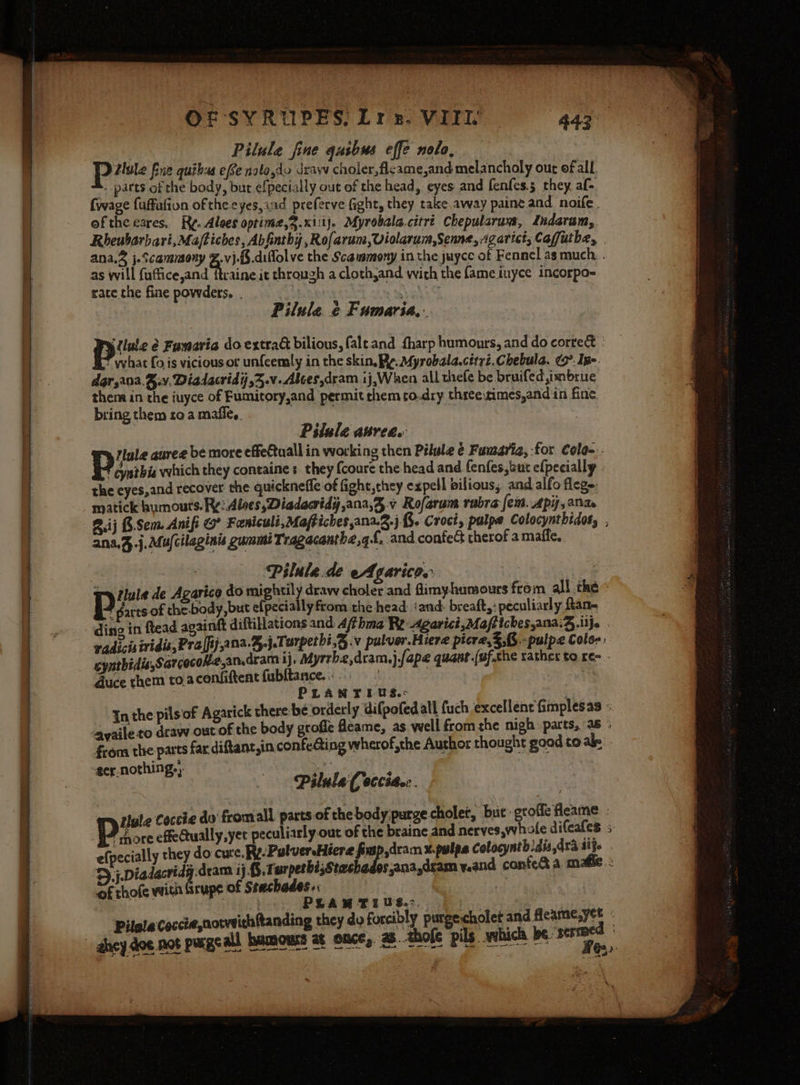 OF SYRUPES. LIB. VIII. 443
Pilulæ sine quibus esse nolo.
PIlulæ sine quibus esse nolo, do draw choler, fleame, and melancholy out of all
parts of the body, but especially out of the head, eyes and senses; they af-
swage suffusion of the eyes, and preserve sight, they take away paine and noise
of the eares. ℞. Aloes optimæ, ʒ.xiiij. Myrobala. citri Chepularum, Indarum,
Rheubarbari, Mastiches, Absinthij, Rosarum, Violarum, Senne, Agarici, Cassuthæ,
ana.ʒ j. Scammony ʒ.vj.ß. dissolve the Scammony in the juyce of Fennel as much
as will suffice, and straine it through a cloth, and with the same iuyce incorpo-
rate the fine powders.
Pilulæ è Fumaria.
PIlulæ è Fumaria do extract bilious, salt and sharp humours, and do correct
what so is vicious or unseemly in the skin. ℞. Myrobala. citri. Chebula. & In-
dar, ana.ʒ.v. Diadacridij, ʒ.v. Aloes, dram ij, When all these be bruised, imbrue
them in the iuyce of Fumitory, and permit them to dry three times, and in fine
bring them to a masse.
Pilulæ aureæ.
PIlulæ aureæ be more effectuall in working then Pilulæ è Fumaria, for Colo-
cynthis which they containe: they scoure the head and senses, but especially
the eyes, and recover the quicknesse of sight, they expell bilious, and also fleg-
matick humours. ℞. Aloes, Diadacridij, ana, ʒ.v Rosarum rubra sem. Apij, ana.
ʒ.ij ß. Sem. Anisi & Fœniculi, Mastiches, ana.ʒ.j ß. Croci, pulpæ Colocynthidos,
ana.ʒ.j. Muscilaginis gummi Tragacanthæ, q.s. and confect therof a masse.
Pilulæ de Agarico.
PIlulæ de Agarico do mightily draw choler and slimy humours from all the
parts of the body, but especially from the head and breast, peculiarly stan-
ding in stead against distillations and Asthma ℞ Agarici, Mastiches, ana.ʒ.iij.
radicis iridis, Prassij, ana.ʒ.j. Turpethi, ʒ.v pulver. Hieræ picræ, ʒ.ß. pulpæ Colo-
cynthidis, Sarcocollæ, an. dram ij. Myrrhæ, dram.j. sapæ quant. suf. the rather to re-
duce them to a consistent substance.
PLANTIUS.
In the pils of Agarick there be orderly disposed all such excellent simples as
availe to draw out of the body grosse fleame, as well from the nigh parts, as
from the parts far distant, in confecting wherof, the Author thought good to al-
ter nothing.
Pilulæ Cocciæ.
PIlulæ Cocciæ do from all parts of the body purge choler, but grosse fleame
more effectually, yet peculiarly out of the braine and nerves, whose diseases
especially they do cure. ℞. Pulver. Hieræ simp, dram x. pulpæ Colocynthidis, drā iij.
D.j. Diadacridij. dram ij.ß. Turpethi, Stœchados, ana, dram v. and confect a masse
of those with Sirupe of Stœchados.
PLANTIUS.
Pilulæ Cocciæ, notwithstanding they do forcibly purge choler and fleame, yet
they doe not purge all humours at once, as those pils which be termed